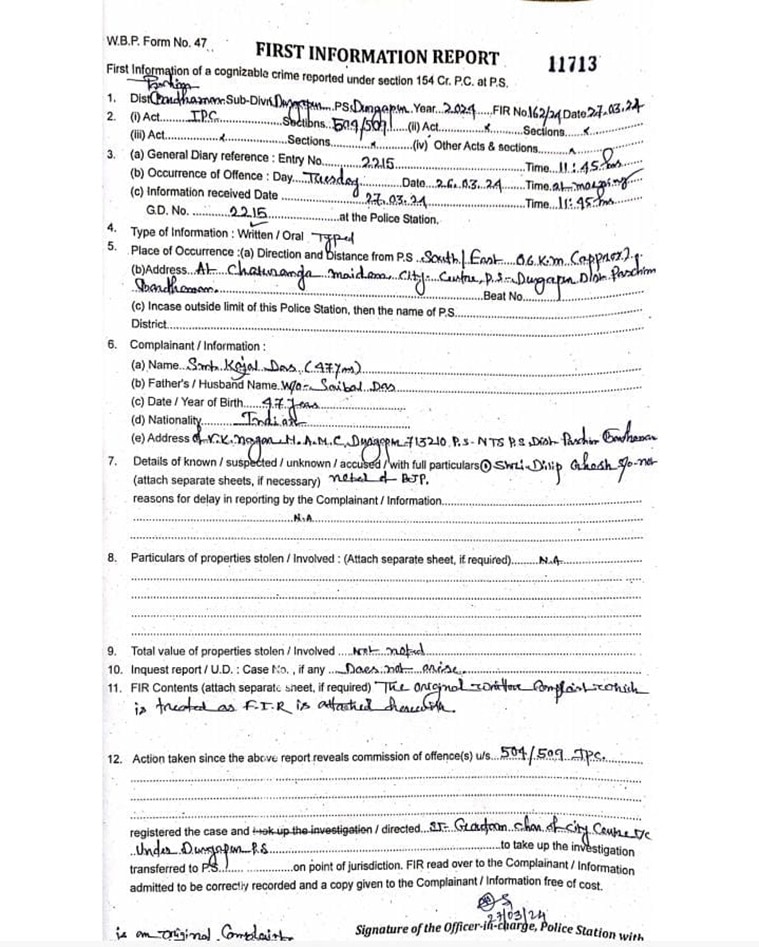 W.B.P. Form No. 47
FIRST INFORMATION REPORT 11713
First Information of a cognizable crime reported under section 154 Cr. P.C. at P.S.
Paschim
1. Dist Bardhaman Sub-Divn Durgapur PS: Durgapur Year 2024 FIR No. 162/24 Date 27.03.24
2. (i) Act IPC Sections 504/509 (ii) Act x Sections x
(iii) Act x Sections x (iv) Other Acts & sections
3. (a) General Diary reference : Entry No. 2215 Time 11:45 hrs
(b) Occurrence of Offence : Day Tuesday Date 26.03.24 Time at morning
(c) Information received Date 27.03.24 Time 11:45 hrs
G.D. No. 2215 at the Police Station.
4. Type of Information : Written / Oral Typed
5. Place of Occurrence :(a) Direction and Distance from P.S South/East 06 K.m (approx)
(b)Address At Chaturanga maidam City Centre, P.S- Durgapur Dist. Paschim
Bardhaman. Beat No
(c) Incase outside limit of this Police Station, then the name of P.S
District
6. Complainant / Information :
(a) Name Smt. Kajal Das (47 yrs)
(b) Father's / Husband Name W/O- Saibal Das
(c) Date / Year of Birth 47 years
(d) Nationality Indian
(e) Address of V.K. nagar M.A.M.C, Durgapur 713210 P.S- NTS P.S, Dist- Paschim Bardhaman
7. Details of known / suspected / unknown / accused / with full particulars ① Shri Dilip Ghosh S/o- not
(attach separate sheets, if necessary) noted of BJP.
reasons for delay in reporting by the Complainant / Information
N.A
8. Particulars of properties stolen / Involved : (Attach separate sheet, if required) N.A
9. Total value of properties stolen / Involved Not noted
10. Inquest report / U.D. : Case No. , if any Does not arise.
11. FIR Contents (attach separate sheet, if required) The original written Complaint which
is treated as F.I.R is attached herewith.
12. Action taken since the above report reveals commission of offence(s) u/s 504/509 IPC.
registered the case and took up the investigation / directed SI- of City Centre
Under Durgapur P.S to take up the investigation
transferred to P.S. on point of jurisdiction. FIR read over to the Complainant / Information
admitted to be correctly recorded and a copy given to the Complainant / Information free of cost.
27/03/24
is an original Complaint Signature of the Officer-in-charge, Police Station with